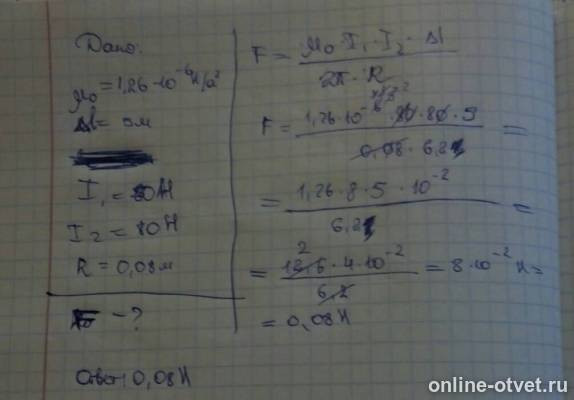 Дано:
μ₀ = 1,26·10⁻⁶ Н/а²
Δl = 5м
I₁ = 80А
I₂ = 80А
R = 0,08м
F - ?
F = μ₀·I₁·I₂·Δl / 2π·R
F = 1,26·10⁻⁶·80·80·5 / 0,08·6,2 =
= 1,26·8·5·10⁻² / 6,2 =
= 12,6·4·10⁻² / 6,2 = 8·10⁻² Н =
= 0,08Н
Ответ: 0,08Н
online-otvet.ru